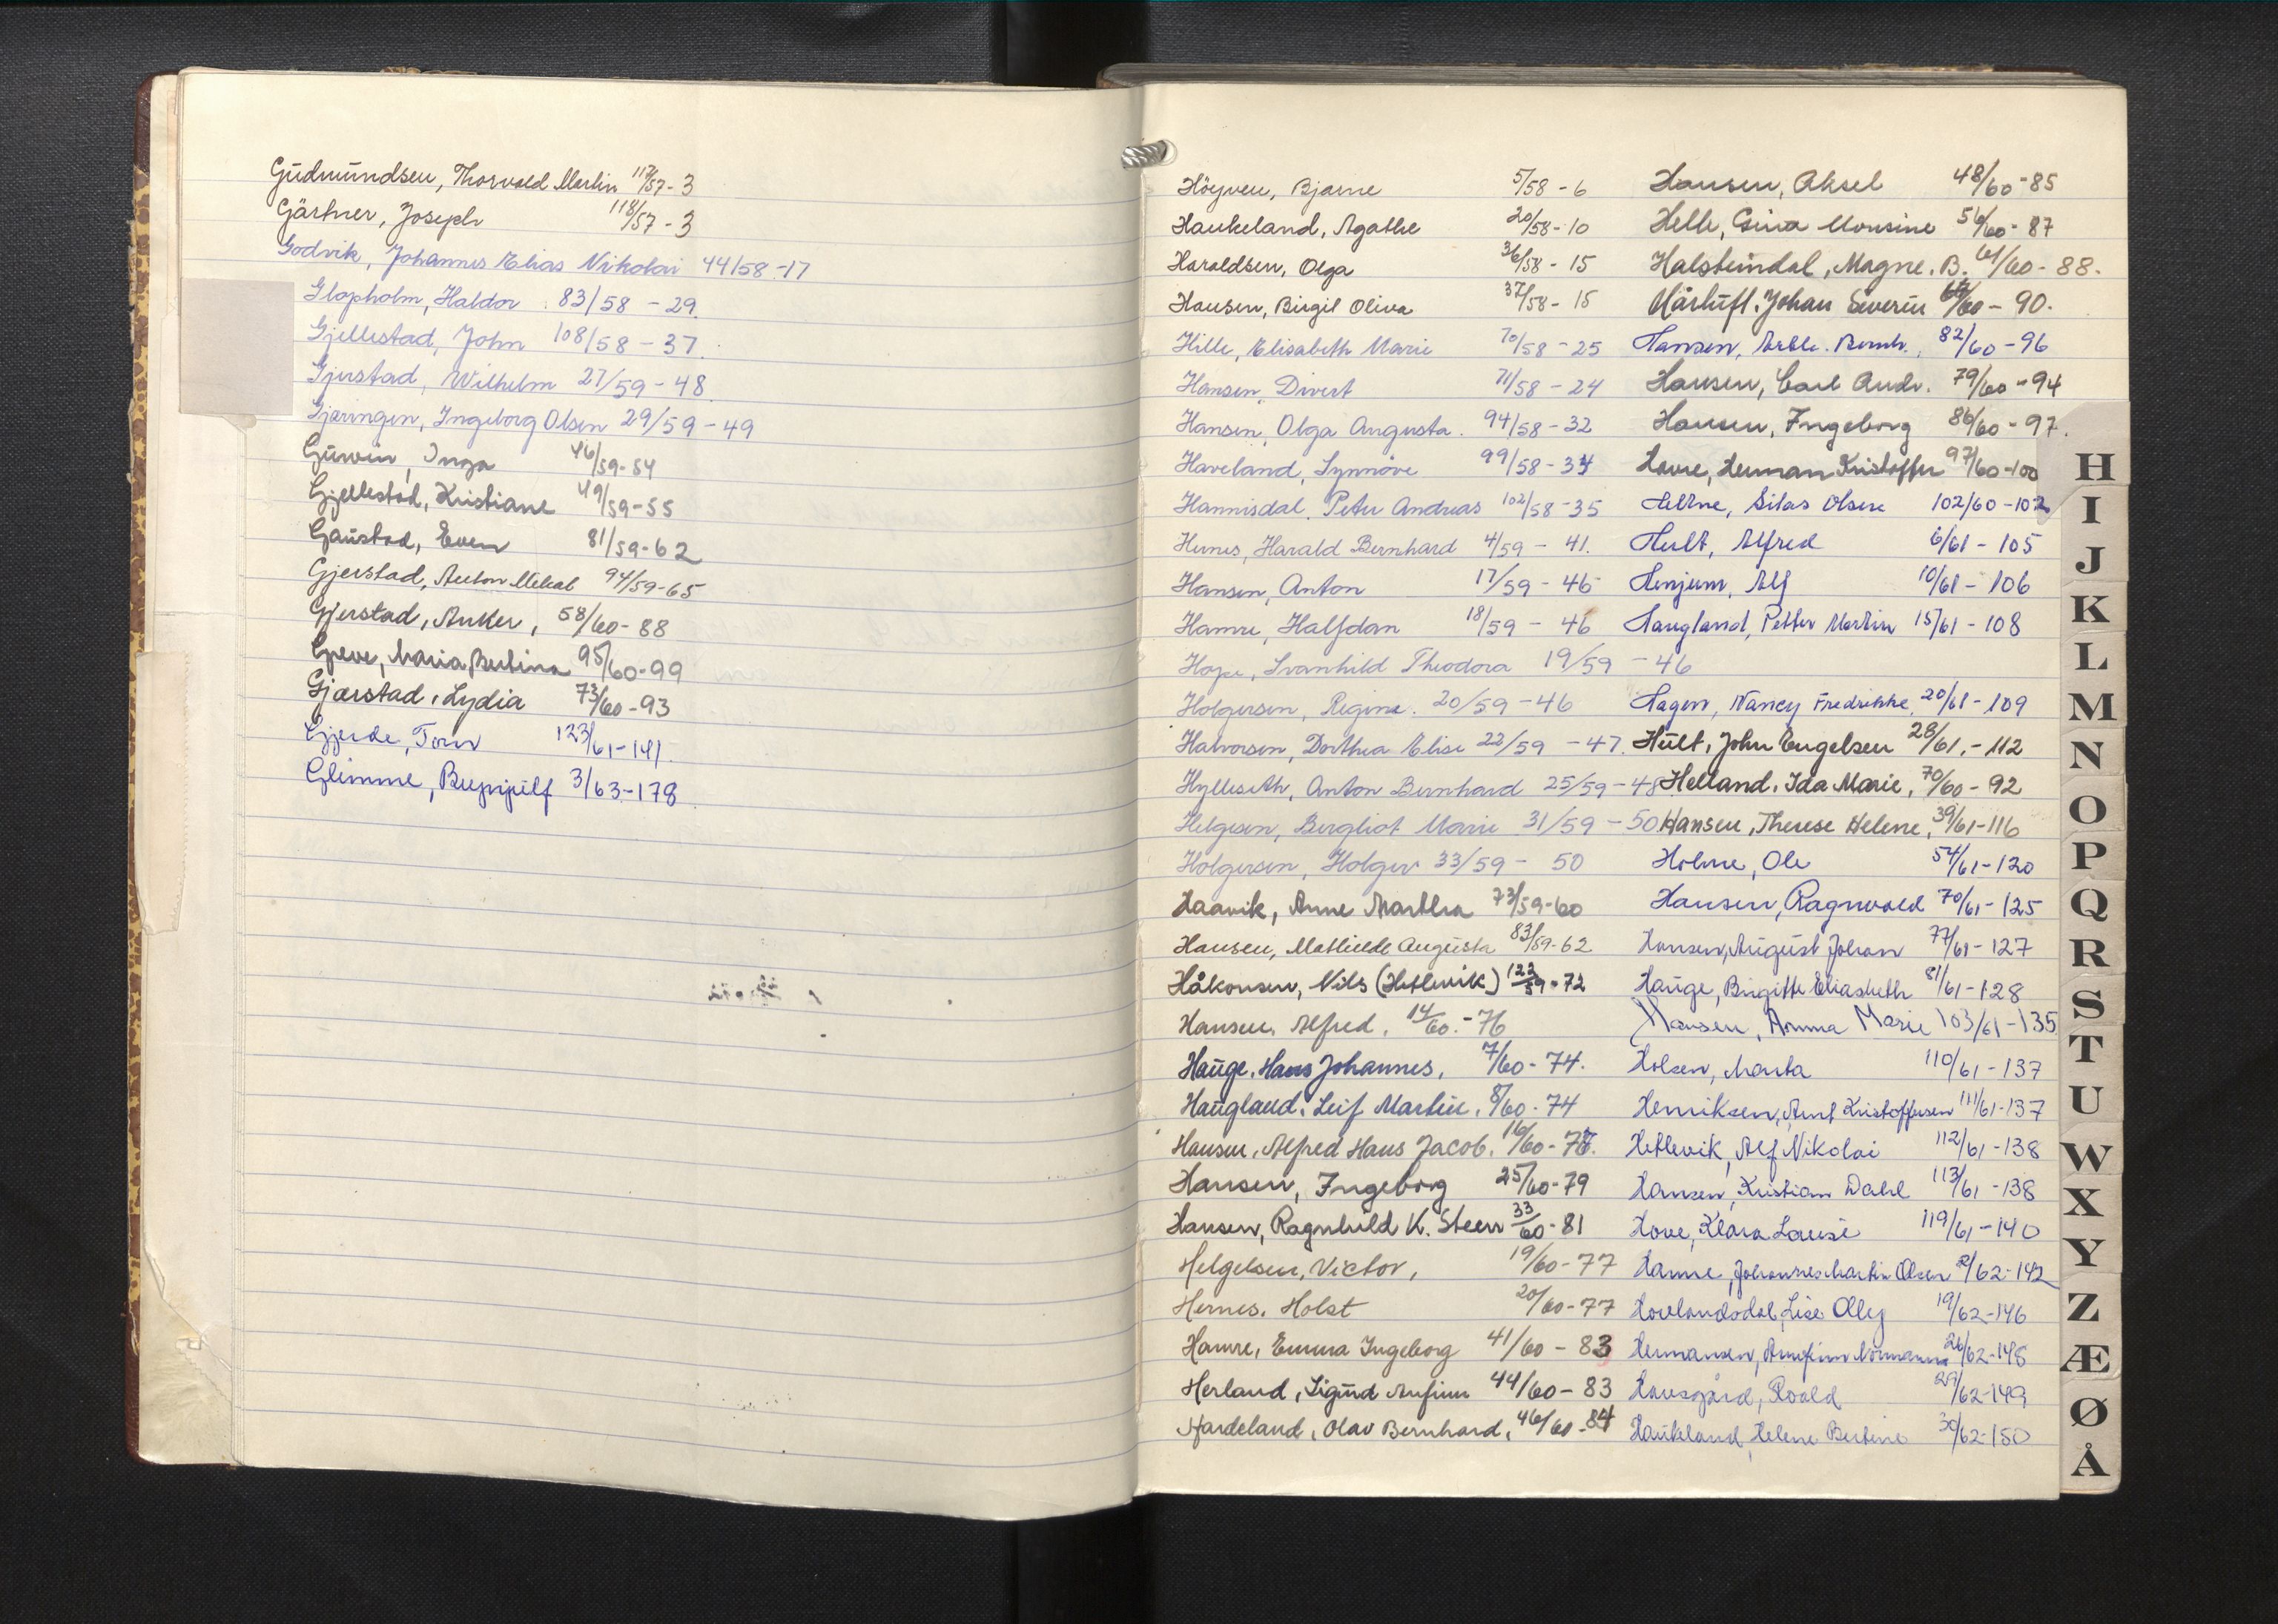 Gudmundsen, Thorvald Martin 117/57 - 3
Gärtner, Joseph 118/57 - 3
Godvik, Johannes Elias Nikolai 44/58 - 17
Glopholm, Haldor 83/58 - 29.
Gjellestad, John 108/58 - 37.
Gjerstad, Wilhelm 27/59 - 48.
Gjæringen, Ingeborg Olsen 29/59 - 49
Inga 46/59 - 54
Gjellestad, Kristiane 49/59 - 55
Gaustad, Even 81/59 - 62
Gjerstad, Anton Mikal 94/59 - 65
Gjerstad, Anker, 58/60 - 88
Greve, Maria Bertina 95/60 - 99
Gjærstad, Lydia 73/60 - 93
Gjerde, Tom 123/61 - 141.
Glimme, Brynjulf 3/63 - 178.
Høyven, Bjarne 5/58 - 6
Haukeland, Agathe 20/58 - 10
Haraldsen, Olga 36/58 - 15
Hansen, Birgit Oliva 37/58 - 15
Hille, Elisabeth Marie 70/58 - 25
Hansen, Divert 71/58 - 24
Hansen, Olga Augusta. 94/58 - 32
Haveland, Synnöve 99/58 - 34
Hannisdal, Peter Andreas 102/58 - 35
Hernes, Harald Bernhard 4/59 - 41.
Hansen, Anton 17/59 - 46
Hamre, Halfdan 18/59 - 46
Hope, Svanhild Theodora 19/59 - 46
Holgersen, Regine. 20/59 - 46
Halvorsen, Dorthea Elise 22/59 - 47.
Hylleseth, Anton Bernhard 25/59 - 48
Helgesen, Bergliot Marie 31/59 - 50
Holgersen, Holger 33/59 - 50
Haavik, Anne Martha 73/59 - 60
Hansen, Mathilde Augusta 83/59 - 62
Håkonsen, Nils (Hetlevik) 122/59 - 72
Hansen, Alfred, 14/60. - 76
Hauge, Hans Johannes, 7/60 - 74.
Haugland, Leif Martin, 8/60 - 74
Hansen, Alfred Hans Jacob. 16/60 - 77.
Hansen, Ingeborg 25/60 - 79
Hansen, Ragnhild K. Steen 33/60 - 81
Helgesen, Victor, 19/60 - 77
Hernes, Holst 20/60 - 77
Hamre, Emma Ingeborg 41/60 - 83
Herland, Sigurd Anfinn 44/60 - 83
Hardeland, Olav Bernhard, 46/60 - 84
Hansen, Aksel 48/60 - 85
Helle, Gina Monsine 56/60 - 87
Halsteindal, Magne. B. 61/60 - 88.
Johan Severin 60 - 90.
Hansen, Bernh., 82/60 - 96
Hansen, Carl Andr. 79/60 - 94
Hansen, Ingeborg 86/60 - 97.
Hovre, Herman Kristoffer 97/60 - 100
Silas Olsen 102/60 - 102
Hult, Alfred 6/61 - 105
Henjum, Alf 10/61 - 106
Haugland, Petter Martin 15/61 - 108
Hagen, Nancy Fredrikke, 20/61 - 109
Hult, John Engelsen 28/61. - 112
Helland, Ida Marie, 70/60 - 92
Hansen, Therese Helene, 39/61 - 116
Holme, Ole 54/61 - 120
Hansen, Ragnvald 70/61 - 125
Hansen, August Johan 77/61 - 127
Hauge, Birgitte Eliasbeth 81/61 - 128
Hansen, Anna Marie 103/61 - 135
Holsen, Marta 110/61 - 137
Henriksen, Arnt Kristoffersen 111/61 - 137
Hetlevik, Alf Nikolai 112/61 - 138
Hansen, Kristian Dahl 113/61 - 138
Hove, Klara Louise 119/61 - 140
Hamre, Johannes Martin Olsen 2/62 - 142
Hovlandsdal, Lise Olly 19/62 - 146
Hermansen, Arnfinn Normann 26/62 - 148
Havsgård, Roald 29/62 - 149
Haukeland, Helene Bertine 30/62 - 150
H
I
J
K
L
M
N
O
P
Q
R
S
T
U
W
X
Y
Z
Æ
Ø
Å